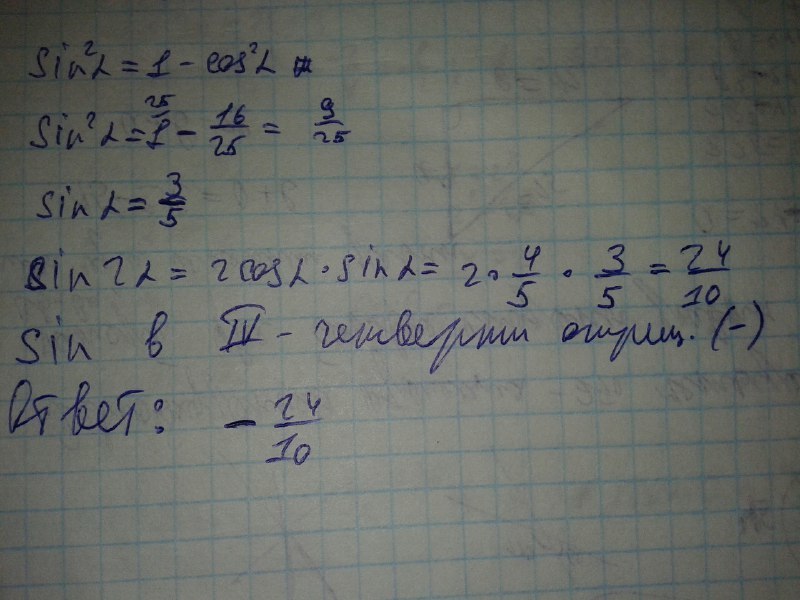 sin²α = 1 - cos²α
sin²α = 1²⁵ - 16/25 = 9/25
sin α = 3/5
sin 2α = 2cosα · sinα = 2 · 4/5 · 3/5 = 24/10
Sin в IV - четверти отриц. (-)
Ответ: - 24/10